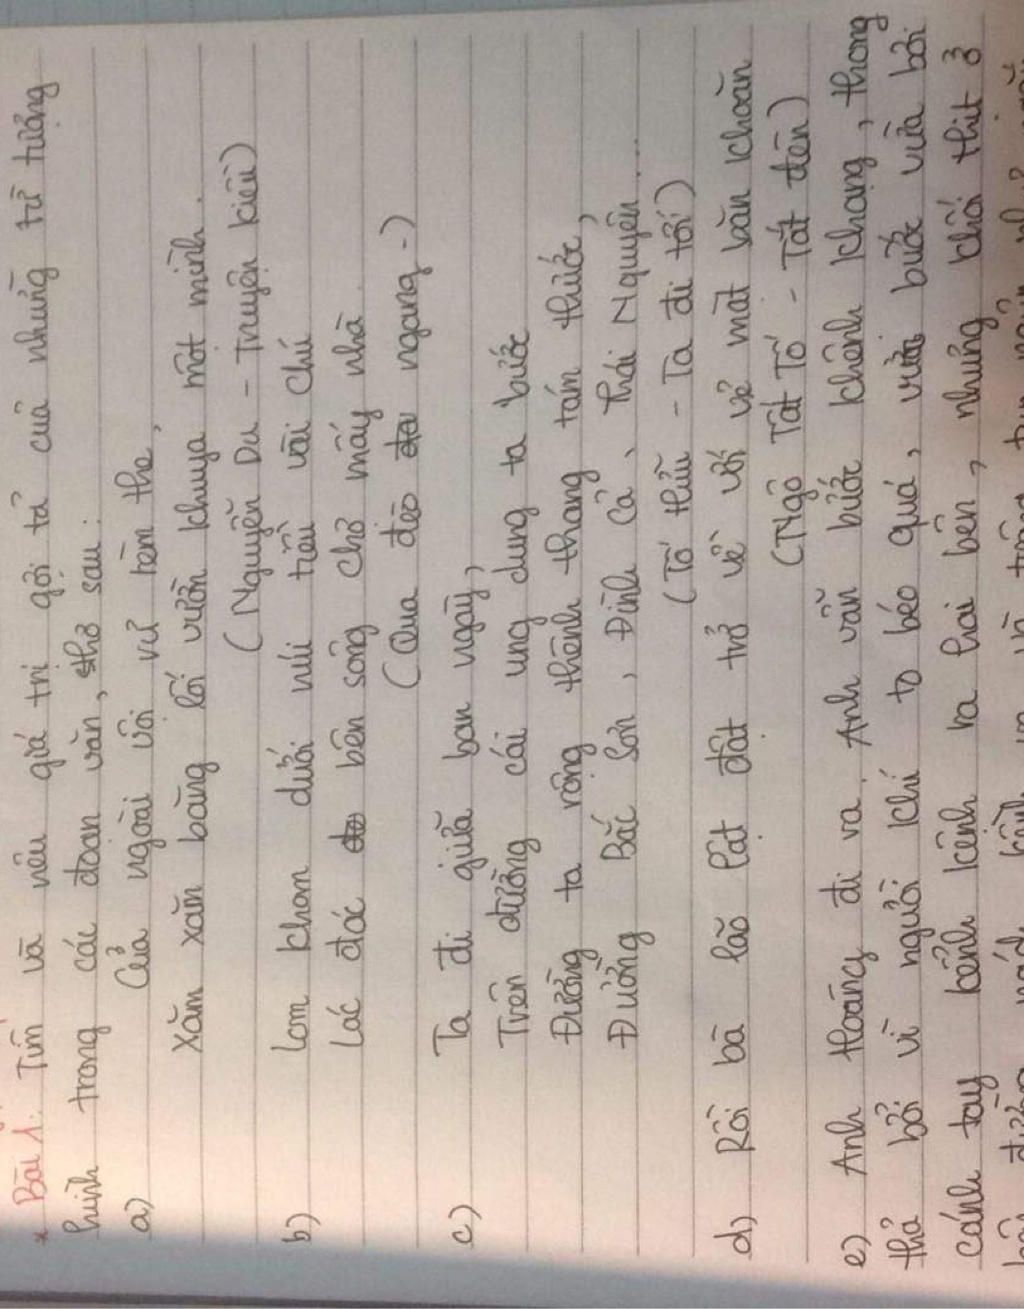 * Bài 1. Tìm và nêu giá trị gợi tả của những từ tượng
hình trong các đoạn văn, thơ sau:
a) Cửa ngoài vội vủ rèm the,
Xăm xăm băng lối vườn khuya một mình.
(Nguyễn Du - Truyện kiều)
b) Lom khom dưới núi tiều vài chú
Lác đác bên sông chợ mấy nhà
(Qua đèo ngang-)
c) Ta đi giữa ban ngày,
Trên đường cái ung dung ta bước
Đường ta rộng thênh thang tám thước,
Đường Bắc Sơn, Đình Cả, Thái Nguyên...
(Tố Hữu - Ta đi tới)
d) Rồi bà lão lật đật trở về với vẻ mặt băn khoăn
(Ngô Tất Tố - Tắt đèn)
e) Anh Hoàng đi ra. Anh vẫn bước khệnh khạng, thong
thả bởi vì người khí to béo quá, vừa bước vừa bơi
cánh tay kềnh kệnh ra hai bên, những khối thịt ở